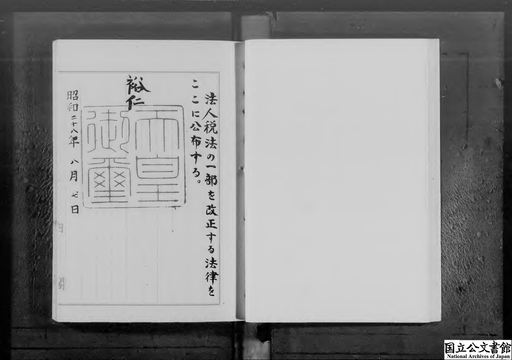 法人税法の一部を改正する法律を
ここに公布する。
裕仁
天皇
御璽
昭和二十八年八月七日
国立公文書館
National Archives of Japan